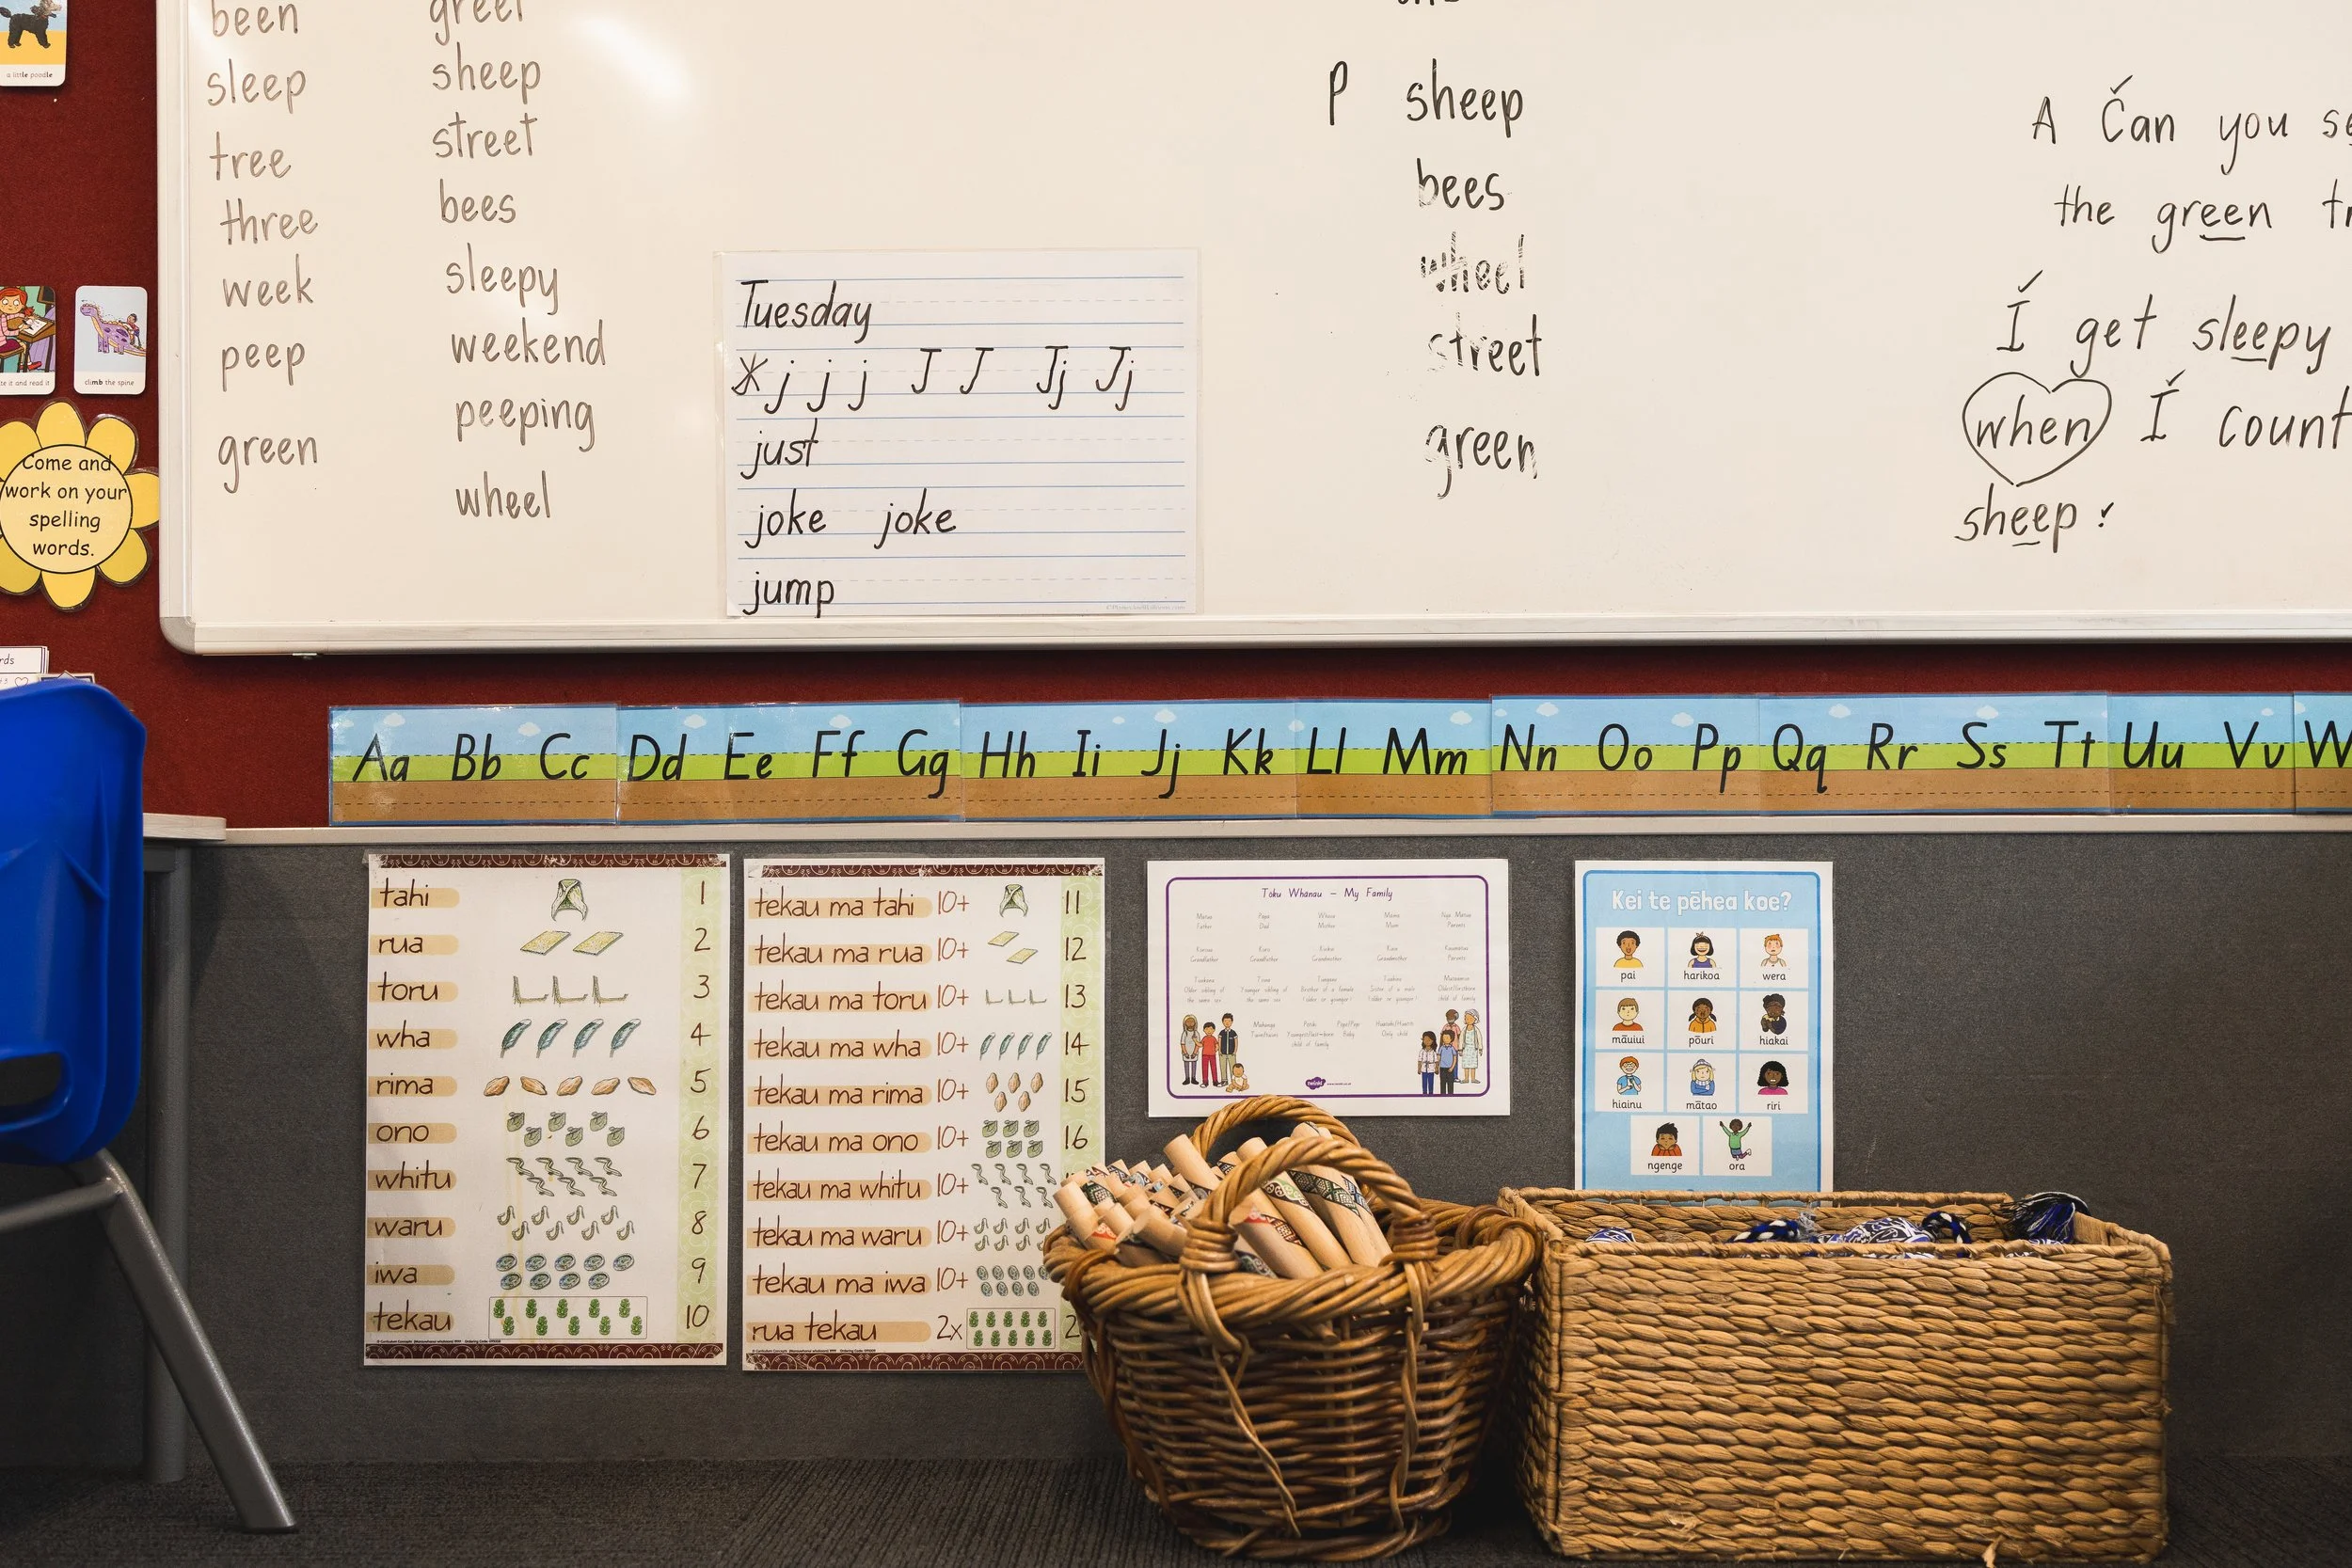 a little poodle
been
sleep
tree
three
week
peep
green
sheep
street
bees
sleepy
weekend
peeping
wheel
Tuesday
j j j J J Jj Jj
just
joke joke
jump
P sheep
bees
wheel
street
green
A Can you
the green
I get sleepy
when I count
sheep
te it and read it
climb the spine
Come and
work on your
spelling
words.
Aa Bb Cc Dd Ee Ff Gg Hh Ii Jj Kk Ll Mm Nn Oo Pp Qq Rr Ss Tt Uu Vv W
tahi 1
rua 2
toru 3
wha 4
rima 5
ono 6
whitu 7
waru 8
iwa 9
tekau 10
tekau ma tahi 10+ 11
tekau ma rua 10+ 12
tekau ma toru 10+ 13
tekau ma wha 10+ 14
tekau ma rima 10+ 15
tekau ma ono 10+ 16
tekau ma whitu 10+
tekau ma waru 10+
tekau ma iwa 10+
rua tekau 2x 2
Toku Whanau – My Family
Father Dad Mother Mum Parents
Grandfather Grandfather Grandmother Grandmother Parents
Kei te pēhea koe?
pai harikoa wera
māuiui pōuri hiakai
hiainu mātao riri
ngenge ora